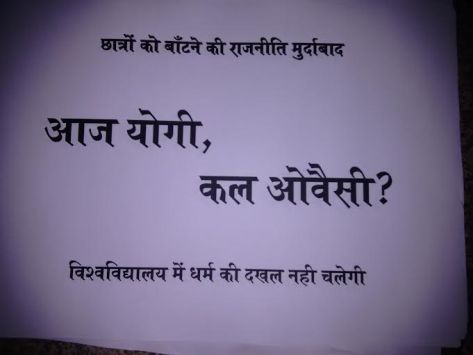 छात्रों को बाँटने की राजनीति मुर्दाबाद
आज योगी,
कल ओवैसी?
विश्वविद्यालय में धर्म की दखल नही चलेगी